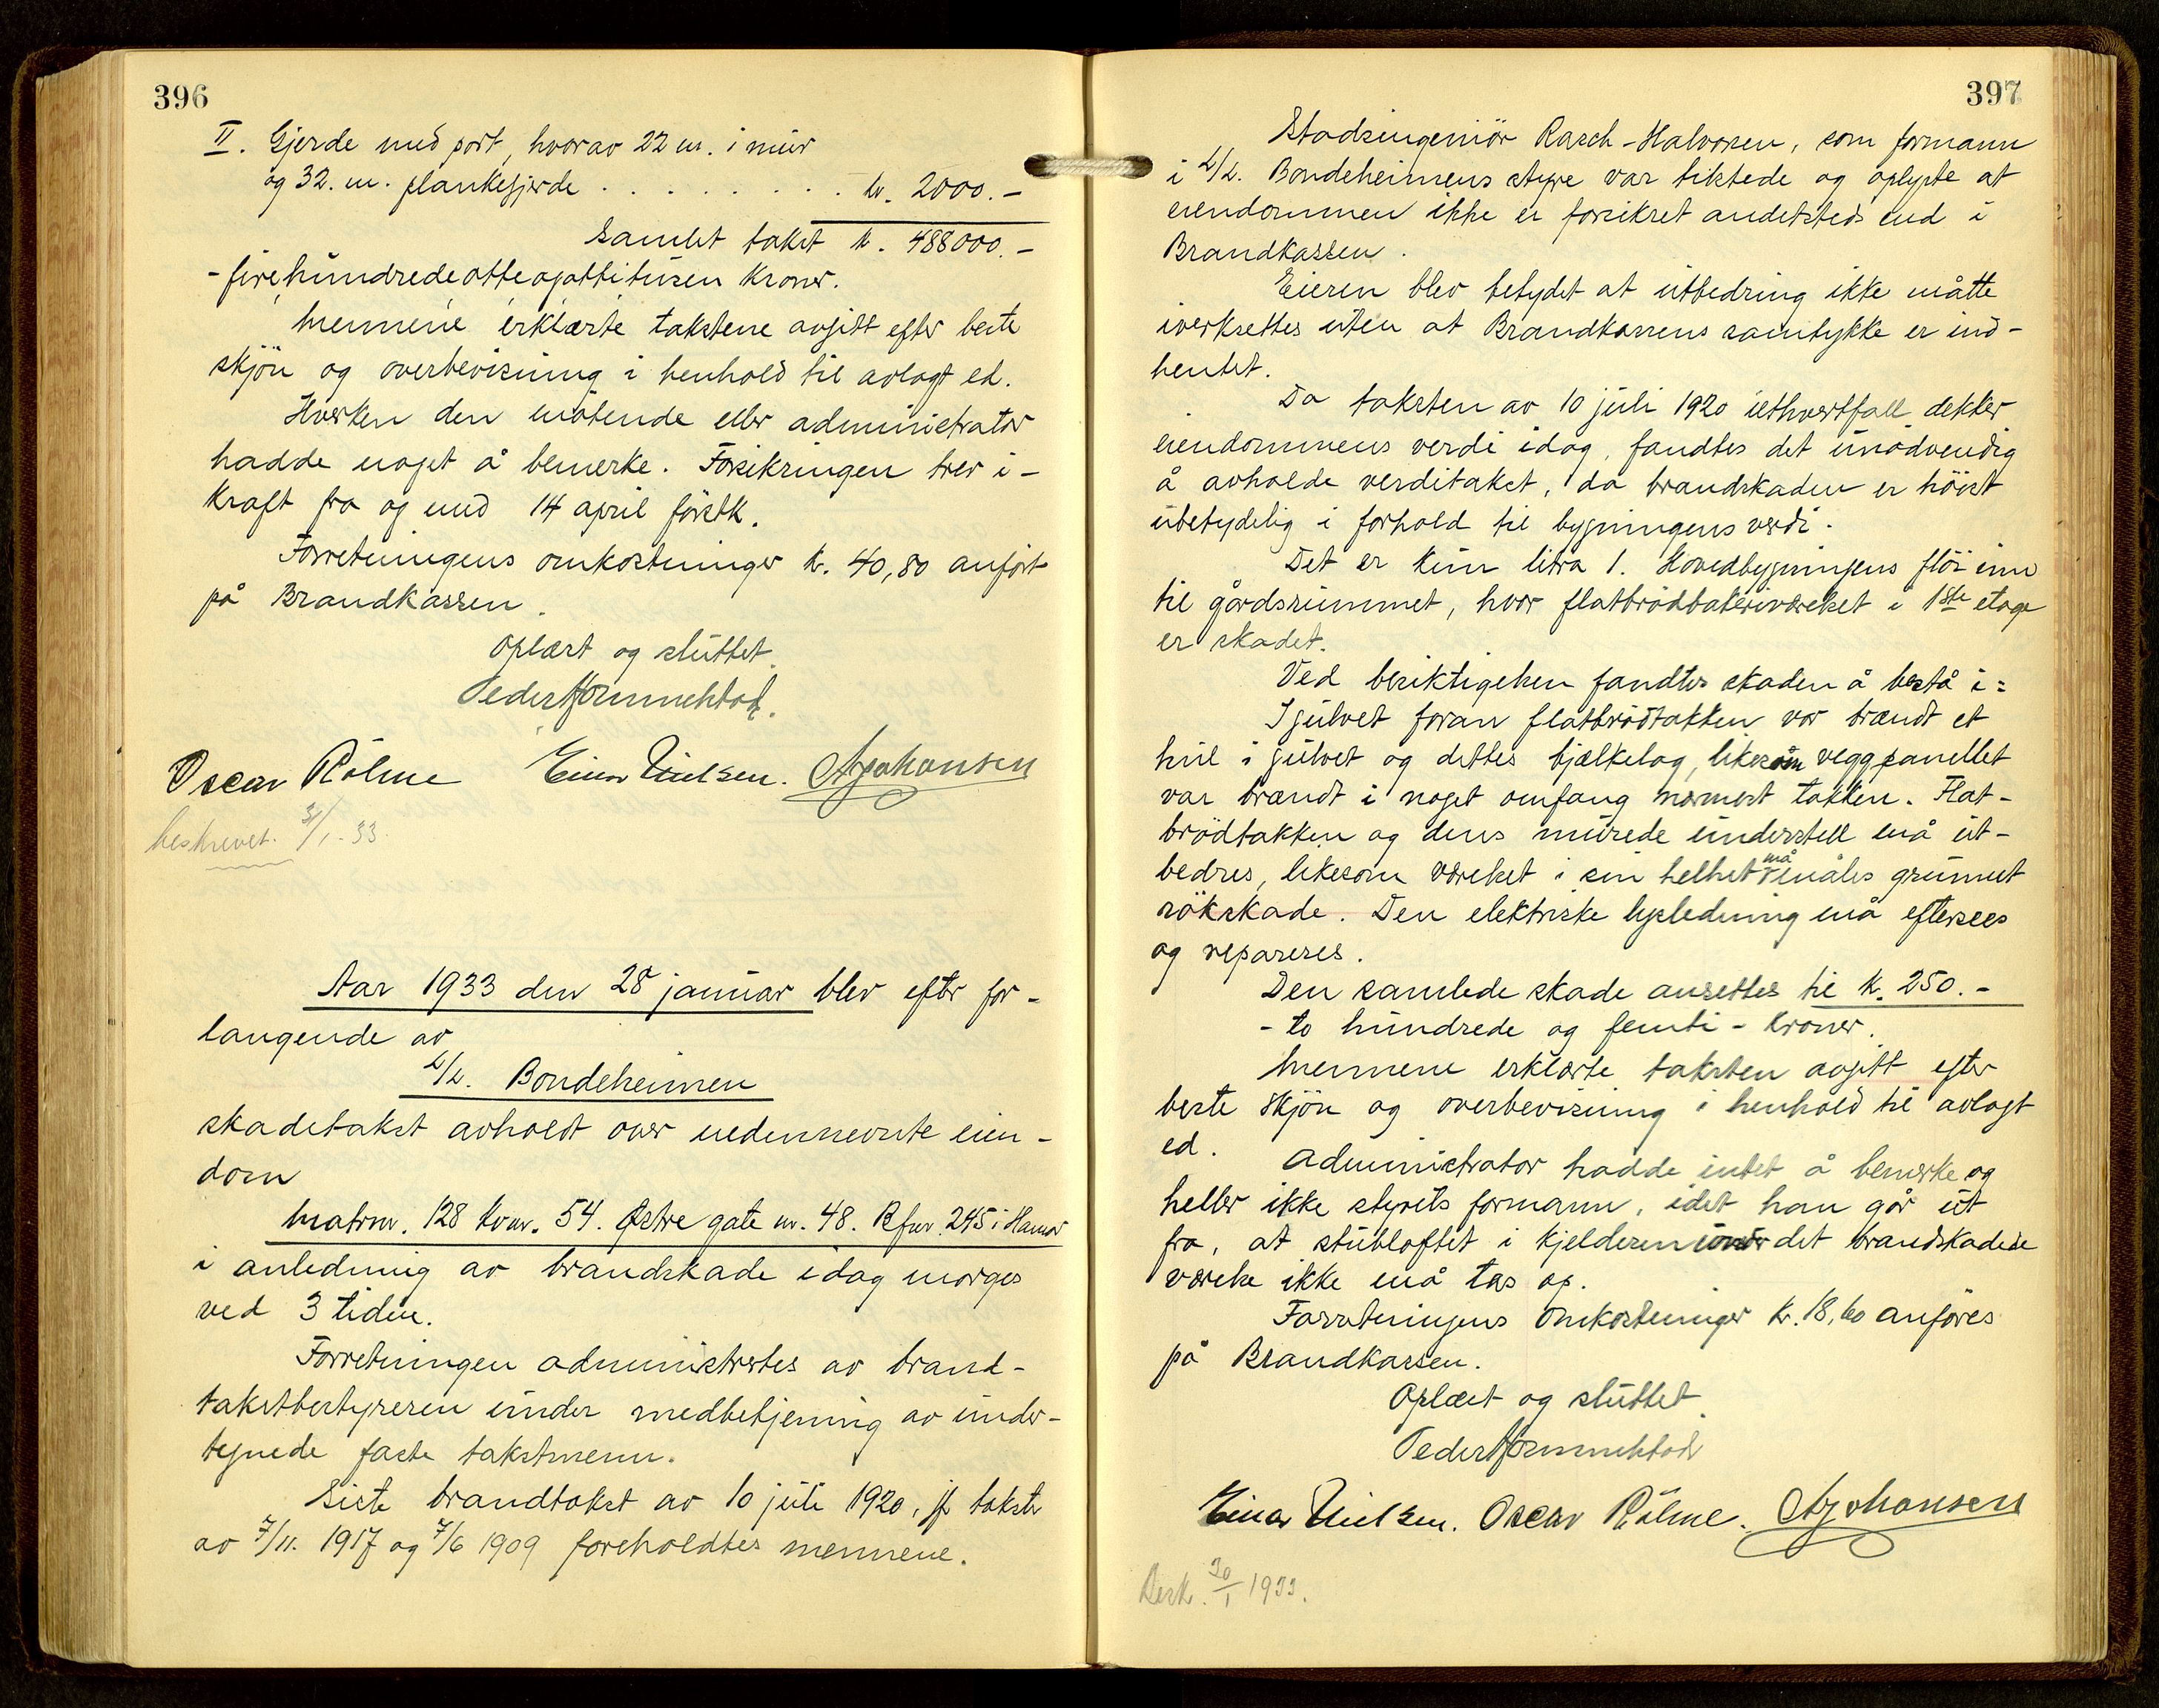 396
II. Gjerde med port, hvorav 22 m. i mur
og 32. m. plankegjerde . . . . . . . . . kr. 2000.-
Samlet takst kr. 488000.-
- firehundredeotteogottitusen kroner.
Mennene erklærte takstene avgitt efter beste
skjön og overbevisning i henhold til avlagt ed.
Hverken den mötende eller administrator
hadde noget å bemerke. Forsikringen trer i-
kraft fra og med 14 april förstk.
Forretningens omkostninger kr. 40,80 anfört
på Brandkassen.
Oplæst og sluttet.
Peder
Oscar Rölme Einar Nielsen. A Johansen
beskrevet. 31/1-33.
Aar 1933 den 28 januar blev efter for-
langende av
L/L. Bondeheimen
skadetakst avholdt over nedennevnte eien-
dom
Matrnr. 128 kvnr. 54. Østre gate nr. 48. Bfnr. 245 i Hamar
i anledning av brandskade idag morges
ved 3 tiden.
Forretningen administrertes av brand-
takstbestyreren under medbetjening av under-
tegnede faste takstmenn.
Siste brandtakst av 10 juli 1920, jf takster
av 7/11. 1917 og 7/6 1909 foreholdtes mennene.
397
Stadsingeniör Rasch-Halvorsen, som formann
i L/L. Bondeheimens styre var tilstede og oplyste at
eiendommen ikke er forsikret andetsteds end i
Brandkassen.
Eieren blev betydet at utbedring ikke måtte
iverksettes uten at Brandkassens samtykke er ind-
hentet.
Da taksten av 10 juli 1920 iethvertfall dekker
eiendommens verdi idag, fandtes det unödvendig
å avholde verditakst, da brandskaden er höist
ubetydelig i forhold til bygningens verdi.
Det er kun litra 1. Hovedbygningens flöi inn
til gårdsrummet, hvor flatbrödbakeriværelset i 1ste etage
er skadet.
Ved besiktigelsen fandtes skaden å bestå i:
I gulvet foran flatbrödtakken var brændt et
hul i gulvet og dettes bjælkelag, likesom veggpanellet
var brændt i noget omfang nærmest takken. Flat-
brödtakken og dens murede understell må ut-
bedres, likesom værelset i sin helhet må renåles grunnet
rökskade. Den elektriske lysledning må eftersees
og repareres.
Den samlede skade ansettes til kr. 250.-
- to hundrede og femti - kroner.
Mennene erklærte taksten avgitt efter
beste skjön og overbevisning i henhold til avlagt
ed.
Administrator hadde intet å bemerke og
heller ikke styrets formann, idet han går ut
fra, at stubloftet i kjelderen under det brandskadede
værelse ikke må tas op.
Forretningens omkostninger kr. 18,60 anföres
på Brandkassen.
Oplæst og sluttet.
Peder
Einar Nielsen. Oscar Rölme. A Johansen
Besk. 30/1 1933.